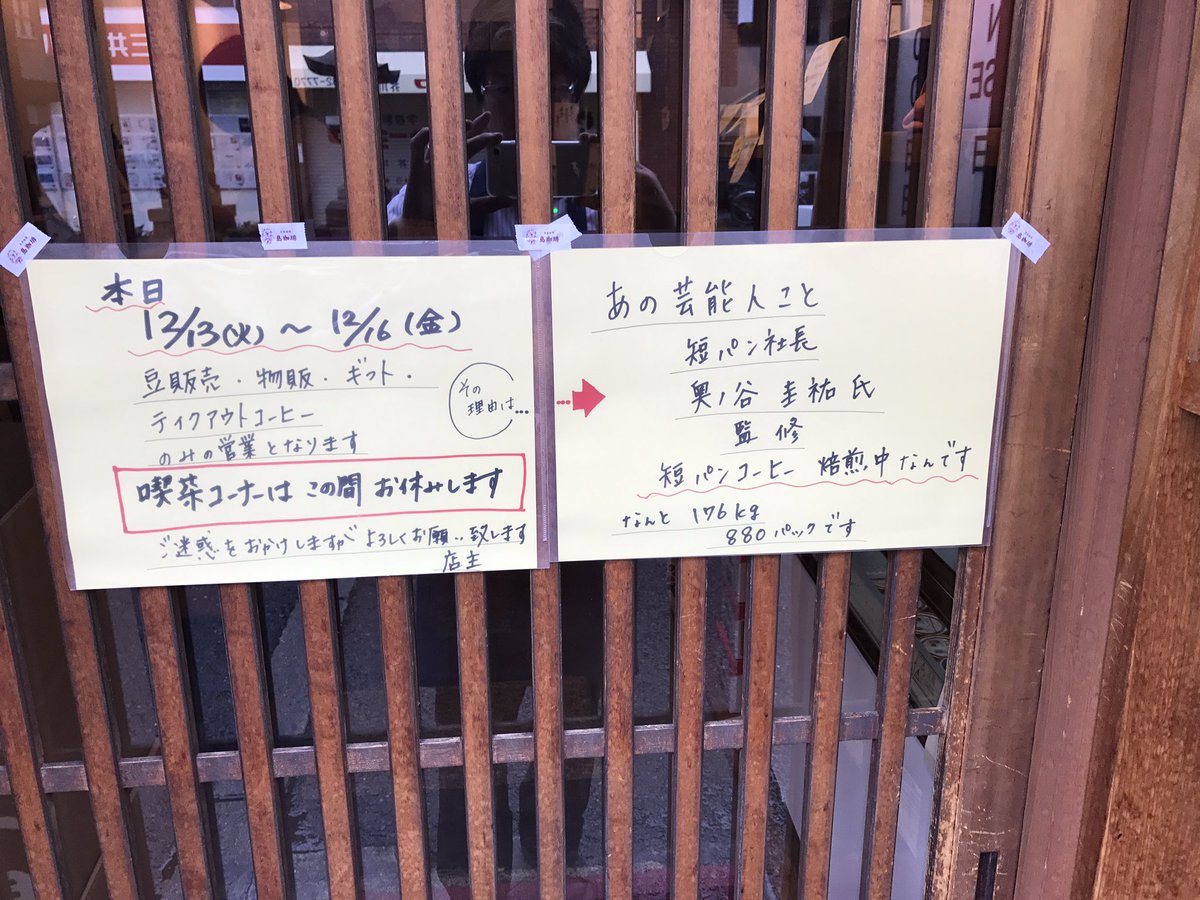 本日
12/13(火)〜12/16(金)
豆販売・物販・ギフト・
テイクアウトコーヒー
のみの営業となります
喫茶コーナーはこの間お休みします
ご迷惑をおかけしますがよろしくお願い致します
店主
その
理由は…
あの芸能人こと
短パン社長
奥ノ谷圭祐氏
監修
短パンコーヒー 焙煎中なんです
なんと 176kg
880パックです
島珈琲
島珈琲
島珈琲
島珈琲
三井